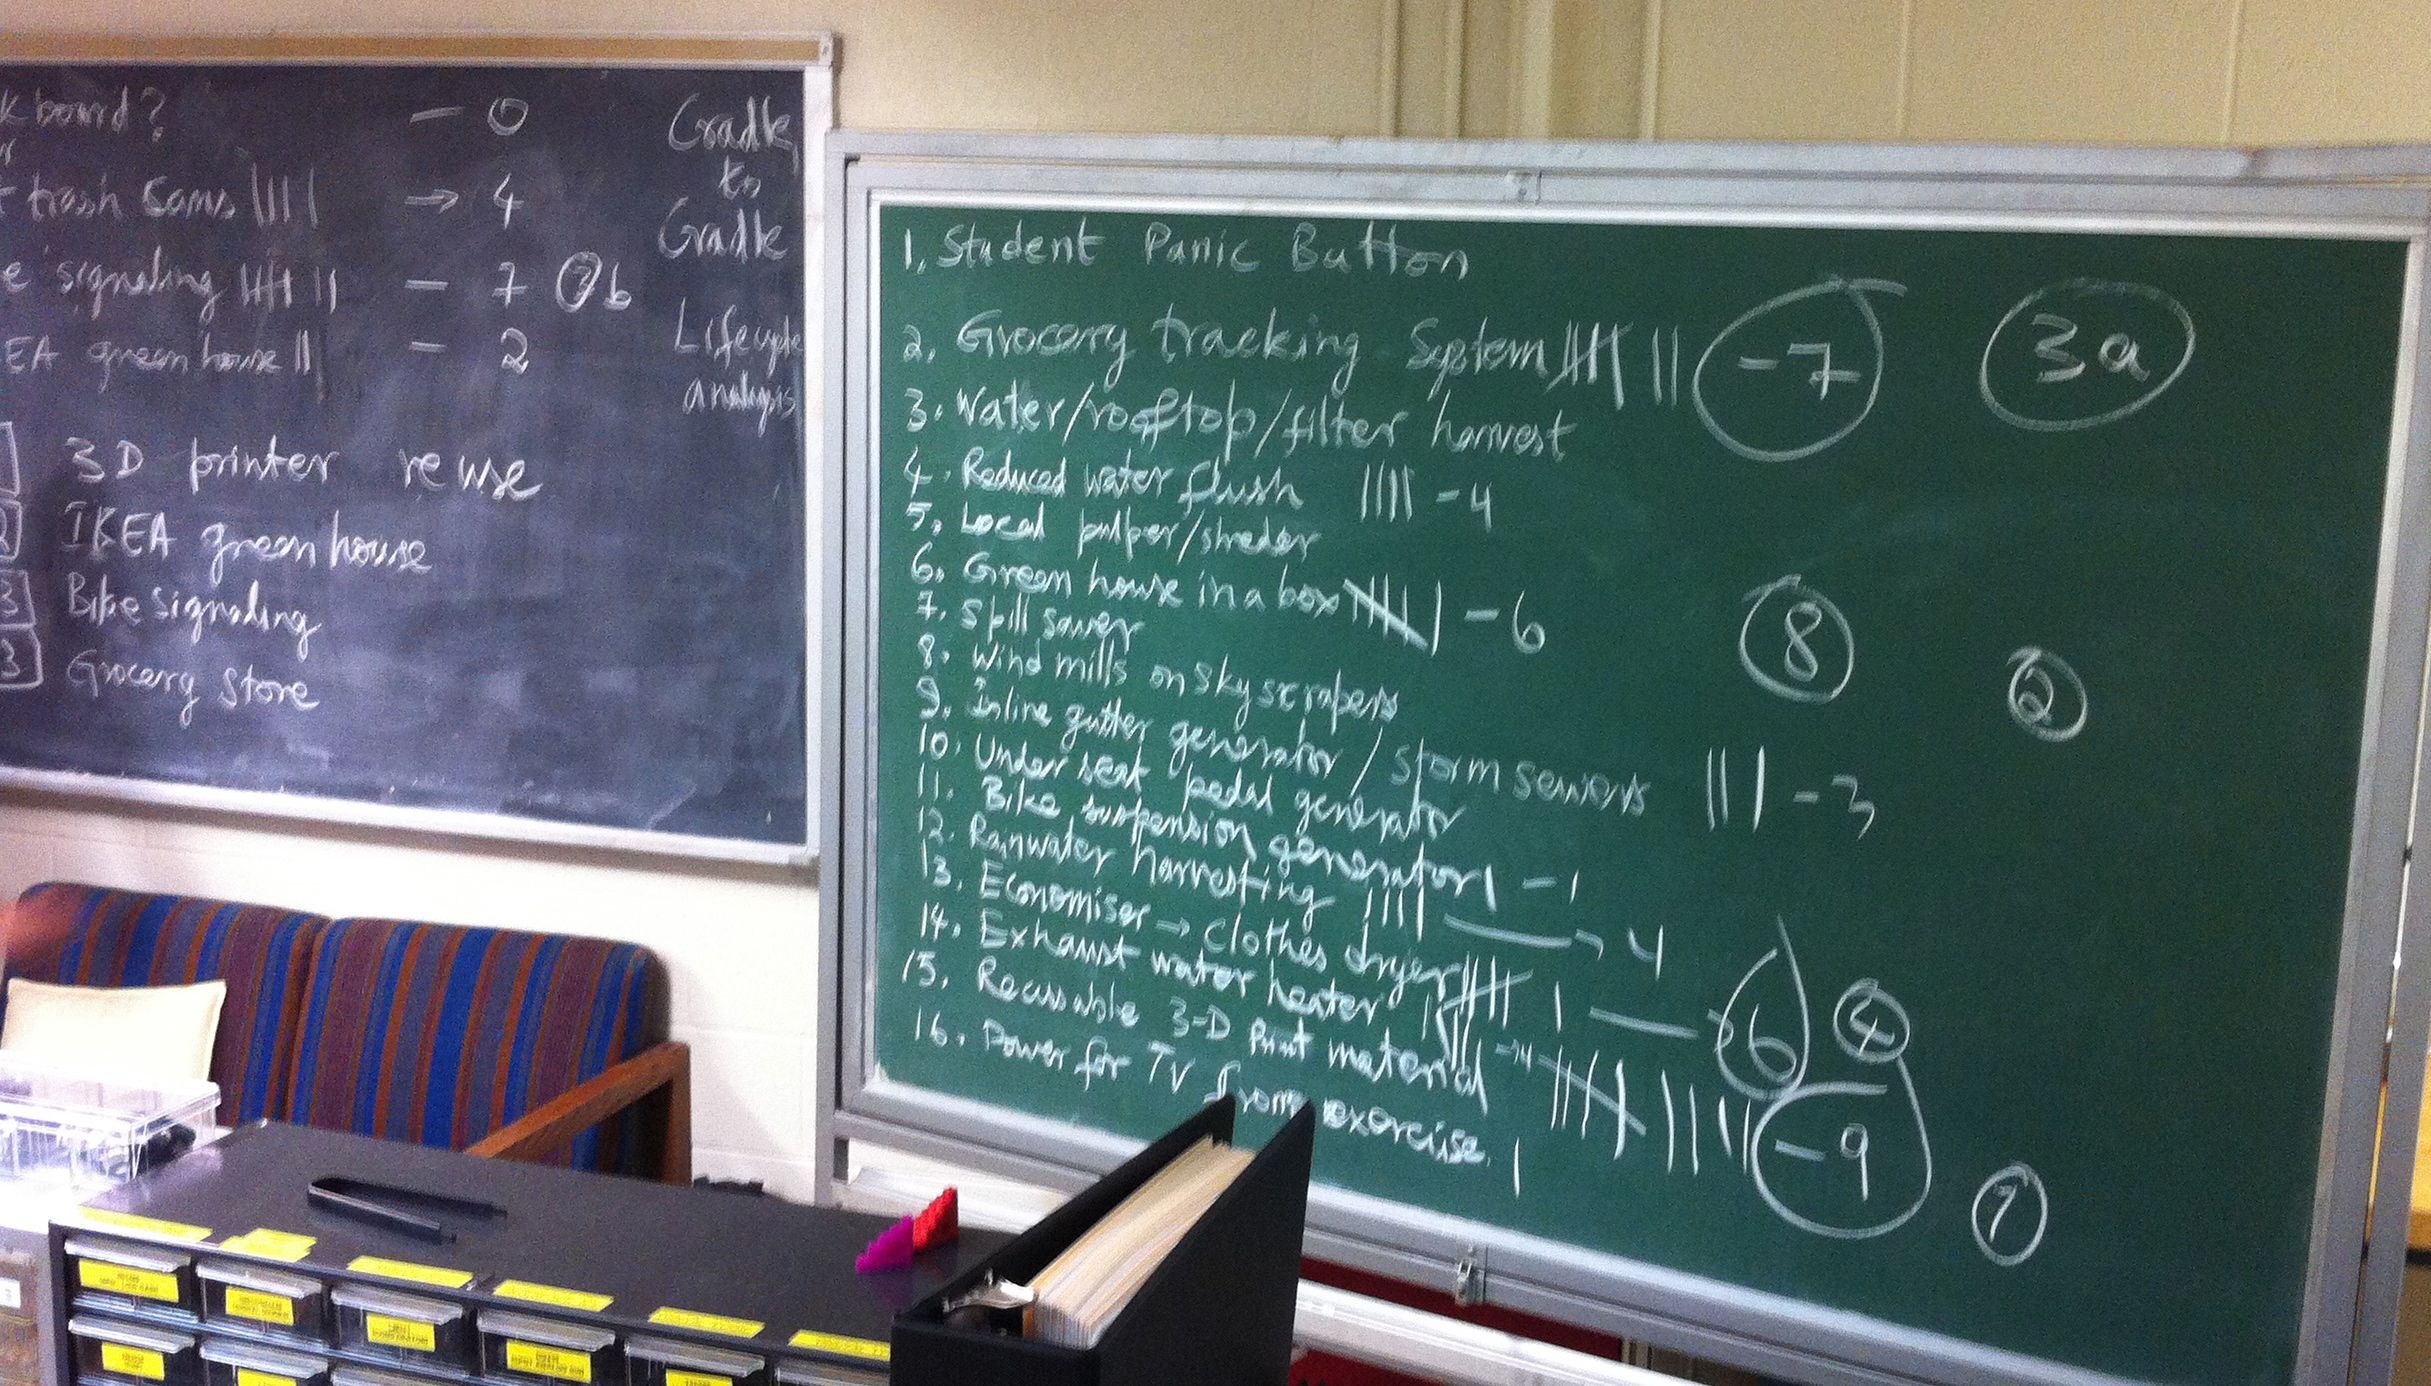 k board? — 0
trash cans |||| → 4
e signaling 𝍸 || — 7 3 b
EA green house || — 2
Cradle
to
Cradle
Lifecycle
analysis
3D printer reuse
IKEA green house
3 Bike signaling
3 Grocery Store
1. Student Panic Button
2. Grocery tracking System 𝍸 || -7 3a
3. Water/rooftop/filter harvest
4. Reduced water flush |||| -4
5. Local pulper/shreder
6. Green house in a box 𝍸 | -6 8 2
7. Spill saver
8. Wind mills on skyscrapers
9. Inline gutter generator/storm sewers ||| -3
10. Under seat pedal generator
11. Bike suspension generator | -1
12. Rainwater harvesting |||| → 4
13. Economiser → Clothes dryer 𝍸 | → 6 4
14. Exhaust water heater |||| →4
15. Reausable 3-D Print material 𝍸 |||| -9 1
16. Power for TV from exercise. |